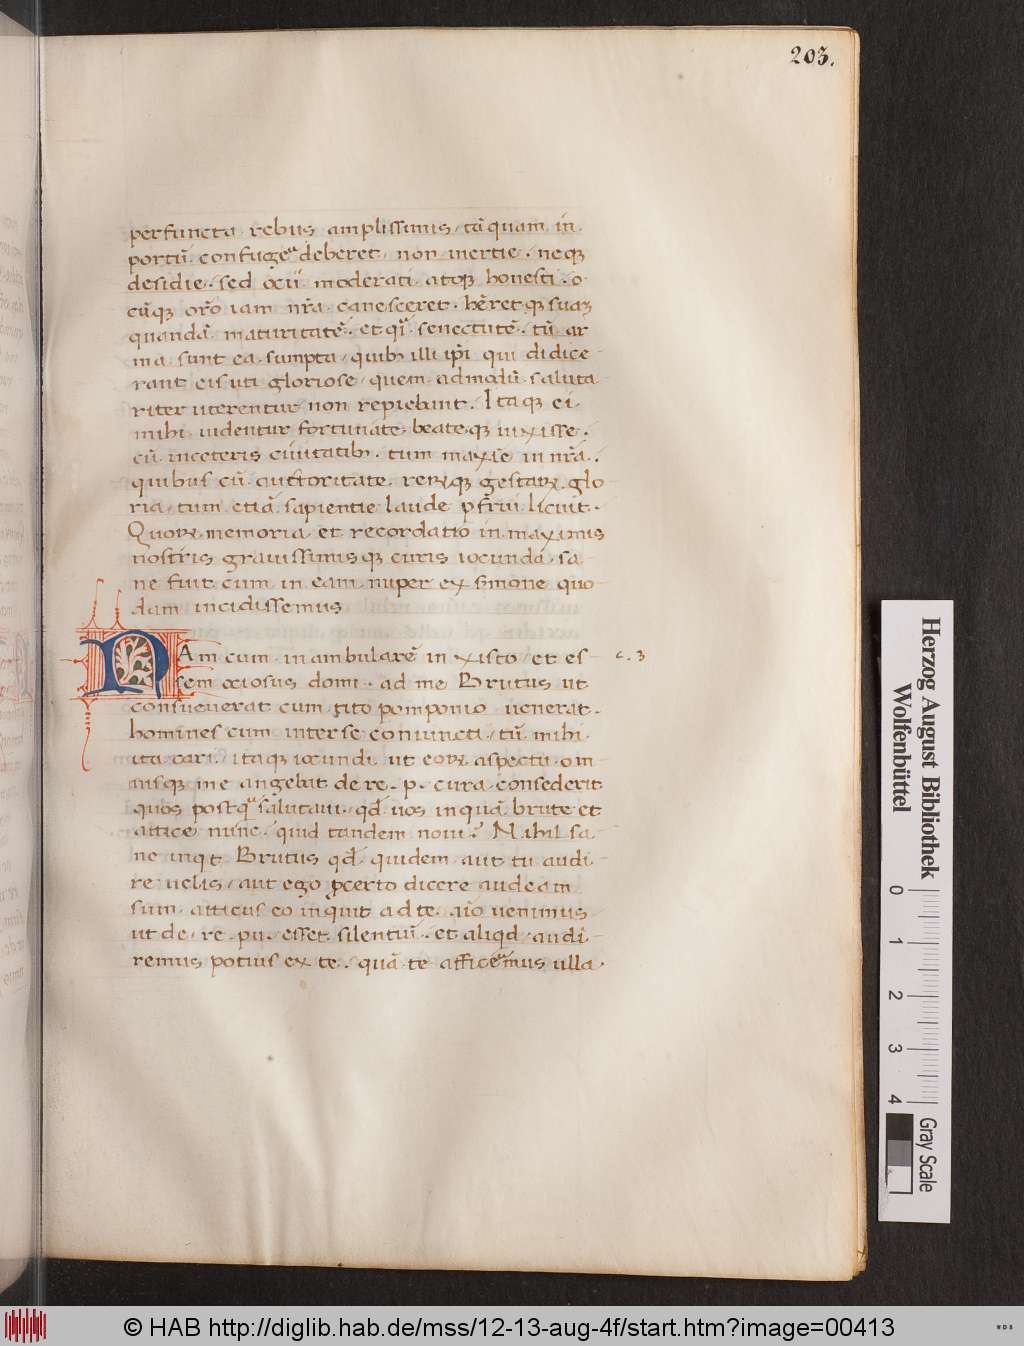 203.
perfuncta rebus amplissimis, tāquam in
portū confugeʳᵉ deberet. non inertie. neqȝ
desidie. sed ocii moderati atqȝ honesti. o
cūqȝ or̄o iam nr̄a canesceret. hēretqȝ suaȝ
quandā maturitatē. et qͣi senectutē. tū ar
ma sunt ea sumpta, quibȝ illi ip̄i qui didice
rant eis uti gloriose, quem admodū saluta
riter uterentur non repiebant. Itaqȝ ei
mihi uidentur fortunate beateqȝ uixisse.
cū inceteris ciuitatibȝ. tum maxīe in nr̄a.
quibus cū auctoritate. reꝝqȝ gestaꝝ glo
ria, tum etiā sapientie laude pfrui licuit.
Quoꝝ memoria et recordatio in maximis
nostris grauissimisqȝ curis iocunda sa
ne fuit cum in eam nuper ex smone quo
dam incidissemus
NAm cum inambularē in xisto, et es
c. 3
sem ociosus domi. ad me Brutus ut
consueuerat cum tito pomponio uenerat.
homines cum inter se coniuncti, tū mihi
ita cari. itaqȝ iocundi ut eoꝝ aspectu om
nisqȝ me angebat de re. p. cura consederit
quos postqͣ salutaui. qd̄ uos inquā brute et
attice nunc. quid tandem noui? Nihil sa
ne inqt Brutus qd̄ quidem aut tu audi
re uelis, aut ego ꝓcerto dicere audeam
tum atticus eo inquit ad te aīo uenimus
ut de. re. pu. esset silentiū. et aliqd audi
remus potius ex te. quā te afficeʳemus ulla.
Herzog August Bibliothek
Wolfenbüttel
0 1 2 3 4
Gray Scale
© HAB http://diglib.hab.de/mss/12-13-aug-4f/start.htm?image=00413